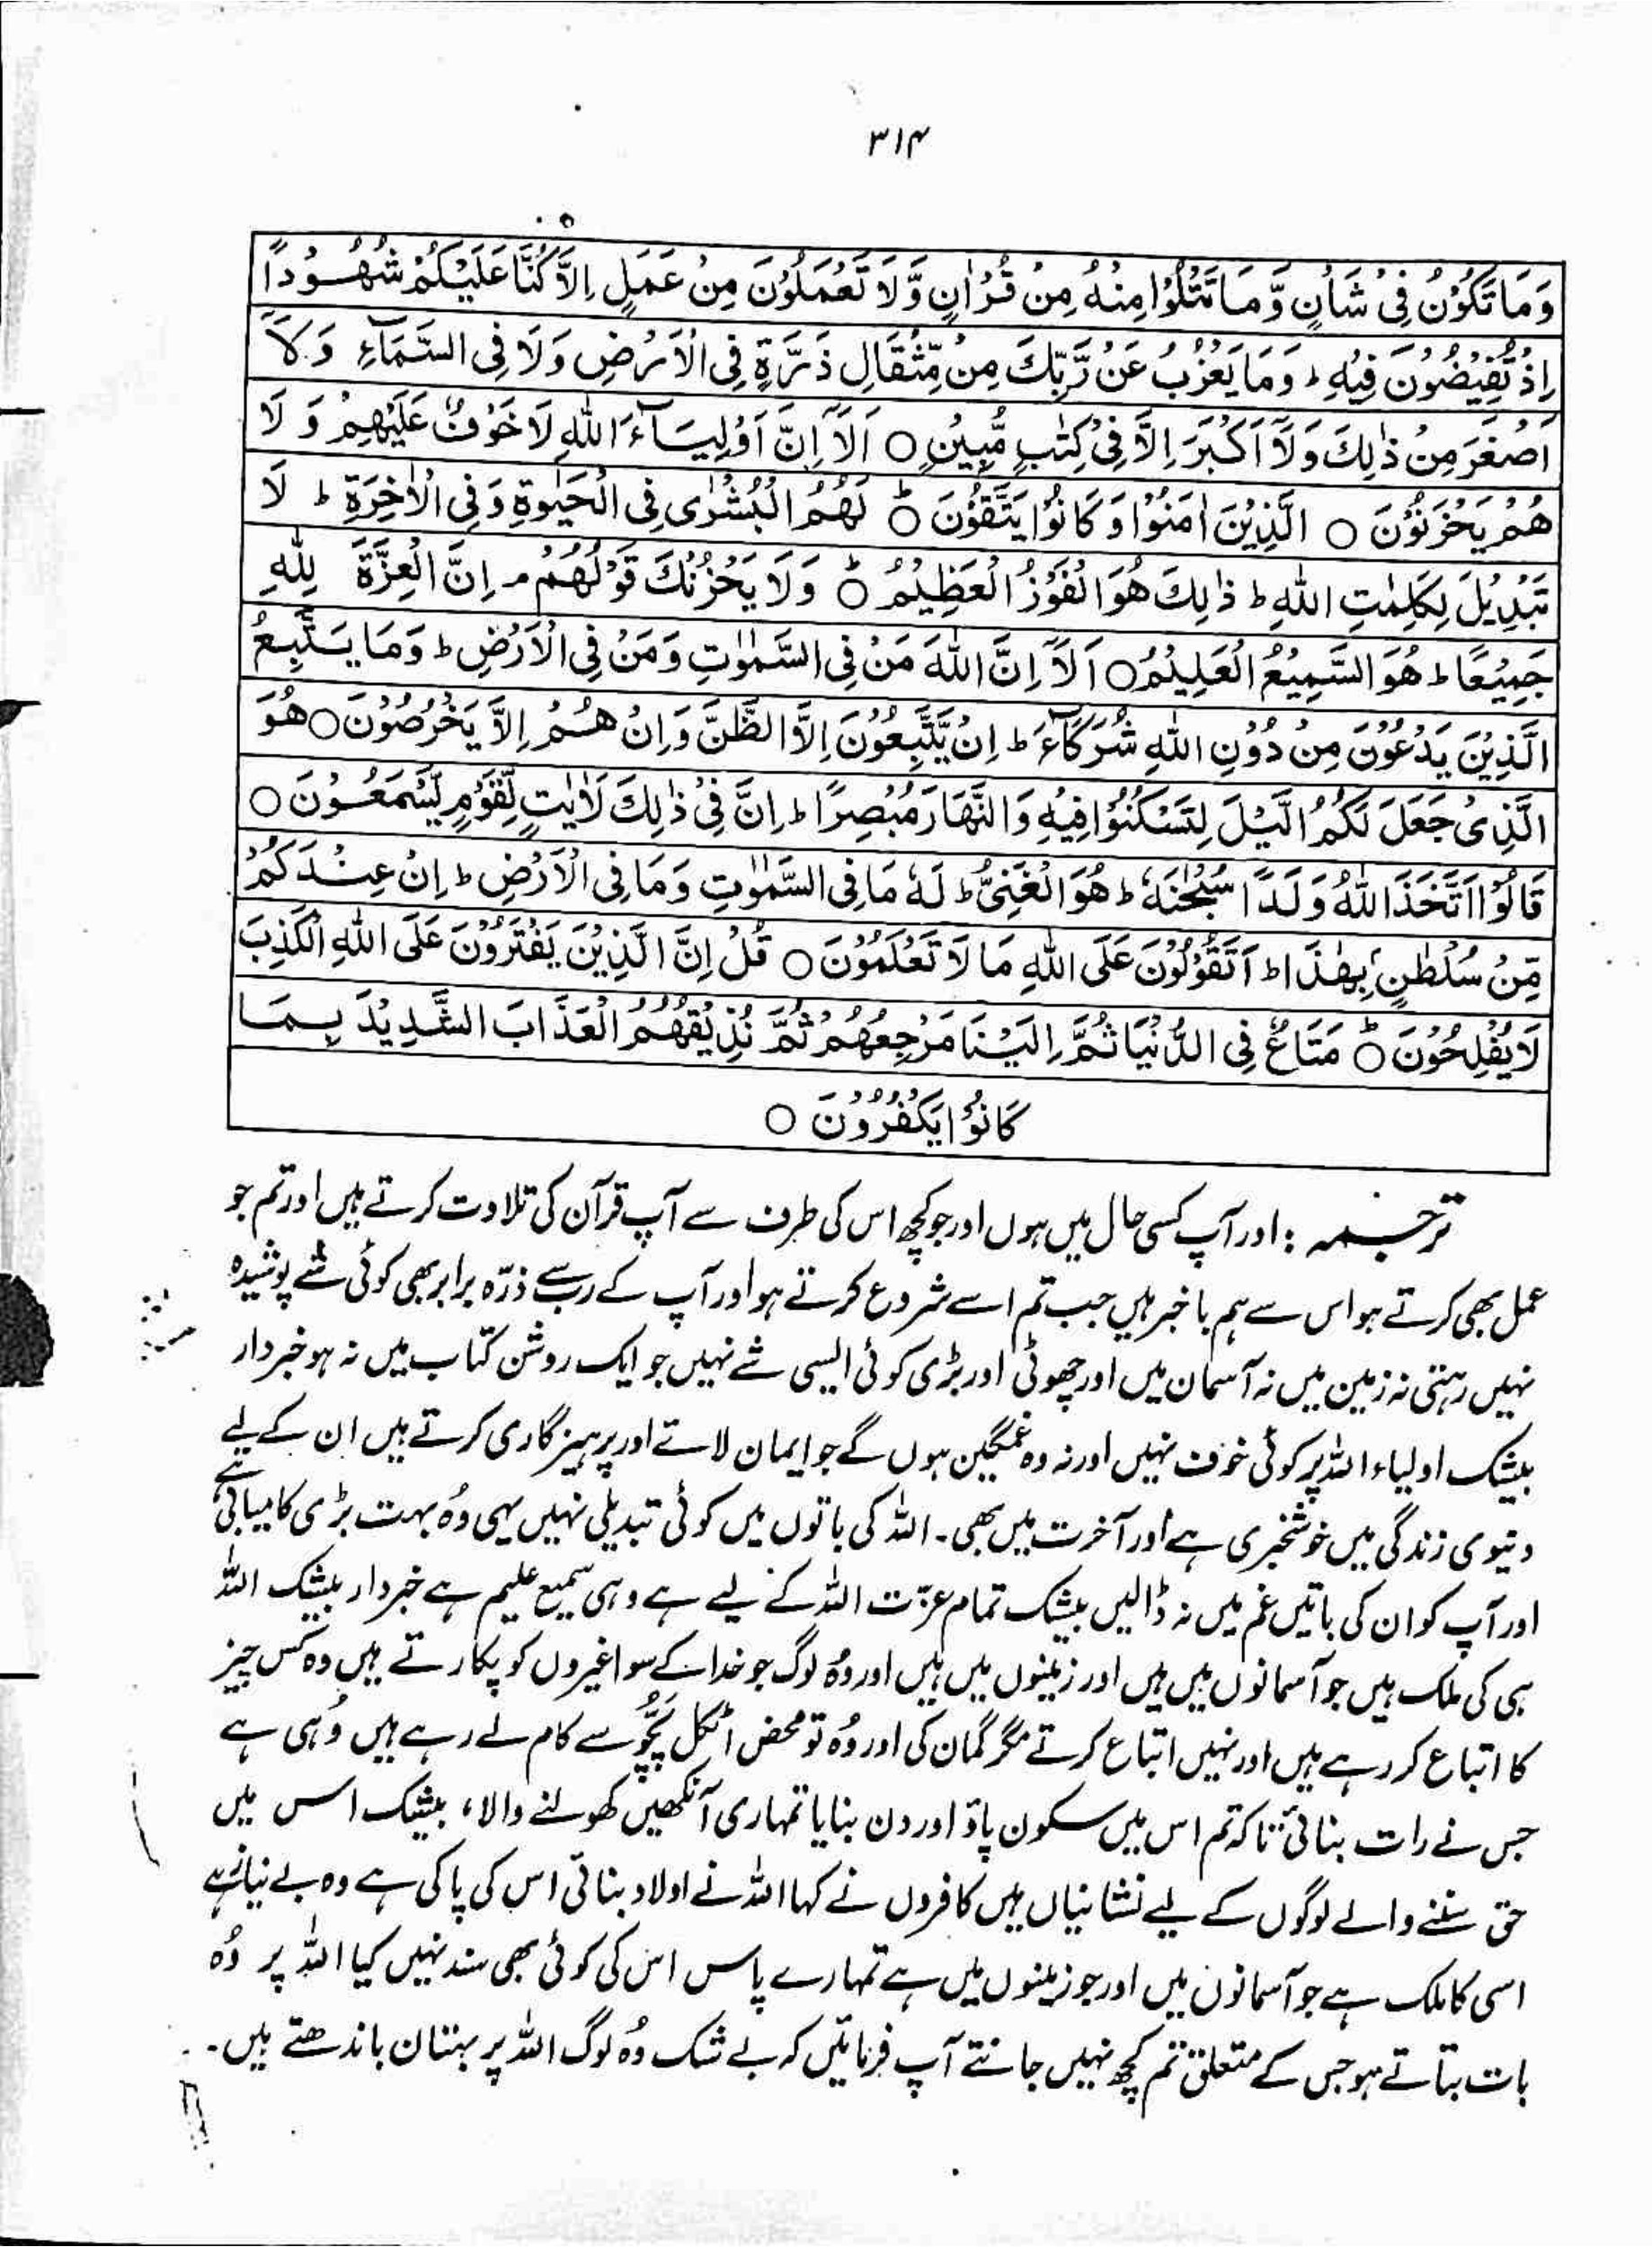 ۳۱۴
وَمَا تَكُوْنُ فِىْ شَاْنٍ وَّمَا تَتْلُوْا مِنْهُ مِنْ قُرْاٰنٍ وَّلَا تَعْمَلُوْنَ مِنْ عَمَلٍ اِلَّا كُنَّا عَلَيْكُمْ شُهُوْدًا
اِذْ تُفِيْضُوْنَ فِيْهِ ط وَمَا يَعْزُبُ عَنْ رَّبِّكَ مِنْ مِّثْقَالِ ذَرَّةٍ فِى الْاَرْضِ وَلَا فِى السَّمَآءِ وَلَآ
اَصْغَرَ مِنْ ذٰلِكَ وَلَآ اَكْبَرَ اِلَّا فِىْ كِتٰبٍ مُّبِيْنٍ ○ اَلَآ اِنَّ اَوْلِيَآءَ اللّٰهِ لَا خَوْفٌ عَلَيْهِمْ وَلَا
هُمْ يَحْزَنُوْنَ ○ الَّذِيْنَ اٰمَنُوْا وَكَانُوْا يَتَّقُوْنَ ○ط لَهُمُ الْبُشْرٰى فِى الْحَيٰوةِ وَفِى الْاٰخِرَةِ ط لَا
تَبْدِيْلَ لِكَلِمٰتِ اللّٰهِ ط ذٰلِكَ هُوَ الْفَوْزُ الْعَظِيْمُ ○ط وَلَا يَحْزُنْكَ قَوْلُهُمْ م اِنَّ الْعِزَّةَ لِلّٰهِ
جَمِيْعًا ط هُوَ السَّمِيْعُ الْعَلِيْمُ ○ اَلَآ اِنَّ اللّٰهَ مَنْ فِى السَّمٰوٰتِ وَمَنْ فِى الْاَرْضِ ط وَمَا يَتَّبِعُ
الَّذِيْنَ يَدْعُوْنَ مِنْ دُوْنِ اللّٰهِ شُرَكَآءَ ط اِنْ يَّتَّبِعُوْنَ اِلَّا الظَّنَّ وَاِنْ هُمْ اِلَّا يَخْرُصُوْنَ ○ هُوَ
الَّذِىْ جَعَلَ لَكُمُ الَّيْلَ لِتَسْكُنُوْا فِيْهِ وَالنَّهَارَ مُبْصِرًا ط اِنَّ فِىْ ذٰلِكَ لَاٰيٰتٍ لِّقَوْمٍ يَّسْمَعُوْنَ ○
قَالُوْا اتَّخَذَ اللّٰهُ وَلَدًا سُبْحٰنَهٗ ط هُوَ الْغَنِىُّ ط لَهٗ مَا فِى السَّمٰوٰتِ وَمَا فِى الْاَرْضِ ط اِنْ عِنْدَكُمْ
مِّنْ سُلْطٰنٍۢ بِهٰذَا ط اَتَقُوْلُوْنَ عَلَى اللّٰهِ مَا لَا تَعْلَمُوْنَ ○ قُلْ اِنَّ الَّذِيْنَ يَفْتَرُوْنَ عَلَى اللّٰهِ الْكَذِبَ
لَا يُفْلِحُوْنَ ○ط مَتَاعٌ فِى الدُّنْيَا ثُمَّ اِلَيْنَا مَرْجِعُهُمْ ثُمَّ نُذِيْقُهُمُ الْعَذَابَ الشَّدِيْدَ بِمَا
كَانُوْا يَكْفُرُوْنَ ○
ترجمہ : اور آپ کسی حال میں ہوں اور جو کچھ اس کی طرف سے آپ قرآن کی تلاوت کرتے ہیں اور تم جو
عمل بھی کرتے ہو اس سے ہم باخبر ہیں جب تم اسے شروع کرتے ہو اور آپ کے رب سے ذرّہ برابر بھی کوئی شے پوشیدہ
نہیں رہتی نہ زمین میں نہ آسمان میں اور چھوٹی اور بڑی کوئی ایسی شے نہیں جو ایک روشن کتاب میں نہ ہو خبردار
بیشک اولیاء اللہ پر کوئی خوف نہیں اور نہ وہ غمگین ہوں گے جو ایمان لاتے اور پرہیزگاری کرتے ہیں ان کے لیے
دنیوی زندگی میں خوشخبری ہے اور آخرت میں بھی۔ اللہ کی باتوں میں کوئی تبدیلی نہیں یہی وُہ بہت بڑی کامیابی ہے
اور آپ کو ان کی باتیں غم میں نہ ڈالیں بیشک تمام عزّت اللہ کے لیے ہے وہی سمیع علیم ہے خبردار بیشک اللہ
ہی کی ملک ہیں جو آسمانوں میں ہیں اور زمینوں میں ہیں اور وُہ لوگ جو خدا کے سوا غیروں کو پکارتے ہیں وہ کس چیز
کا اتباع کر رہے ہیں اور نہیں اتباع کرتے مگر گمان کی اور وُہ تو محض اٹکل پچّو سے کام لے رہے ہیں وُہی ہے
جس نے رات بنائی تاکہ تم اس میں سکون پاؤ اور دن بنایا تمہاری آنکھیں کھولنے والا، بیشک اس میں
حق سننے والے لوگوں کے لیے نشانیاں ہیں کافروں نے کہا اللہ نے اولاد بنائی اس کی پاکی ہے وہ بے نیاز ہے
اسی کا ملک ہے جو آسمانوں میں اور جو زمینوں میں ہے تمہارے پاس اس کی کوئی بھی سند نہیں کیا اللہ پر وُہ
بات بتاتے ہو جس کے متعلق تم کچھ نہیں جانتے آپ فرمائیں کہ بے شک وُہ لوگ اللہ پر بہتان باندھتے ہیں۔